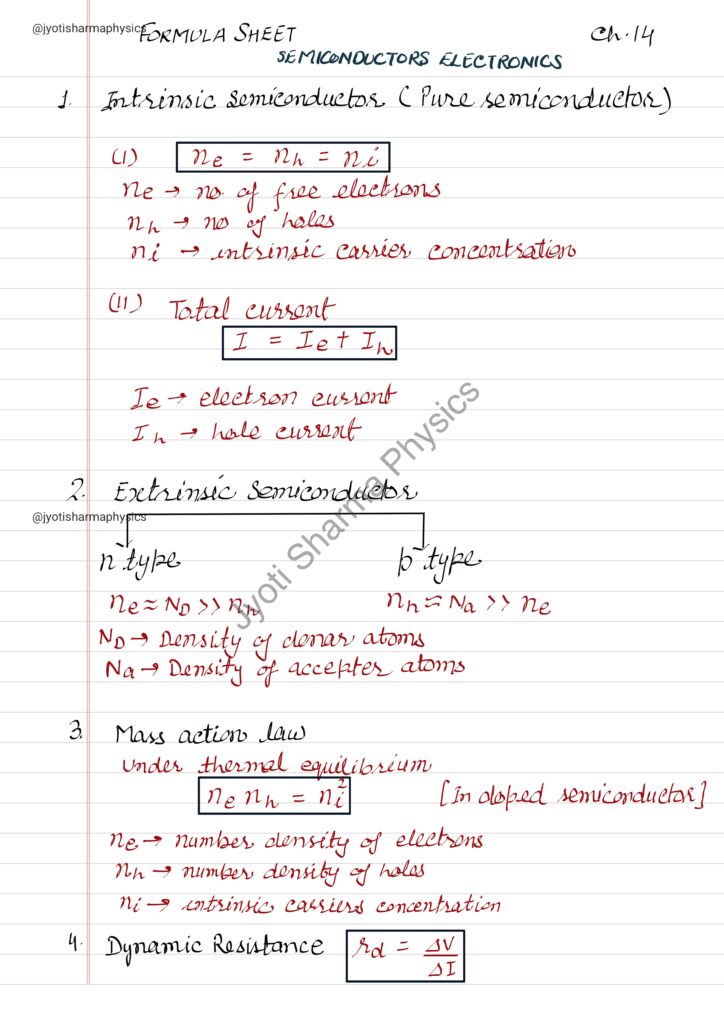 @jyotisharmaphysics FORMULA SHEET Ch.14
SEMICONDUCTORS ELECTRONICS
1. Intrinsic semiconductor (Pure semiconductor)
(I) ne = nh = ni
ne → no of free electrons
nh → no of holes
ni → intrinsic carrier concentration
(II) Total current
I = Ie + Ih
Ie → electron current
Ih → hole current
2. Extrinsic Semiconductor
@jyotisharmaphysics
n type p type
ne ≈ ND >> nh nh ≈ Na >> ne
ND → Density of donar atoms
Na → Density of accepter atoms
3. Mass action law
Under thermal equilibrium
ne nh = ni² [In doped semiconductor]
ne → number density of electrons
nh → number density of holes
ni → intrinsic carriers concentration
4. Dynamic Resistance rd = ΔV/ΔI
Jyoti Sharma Physics